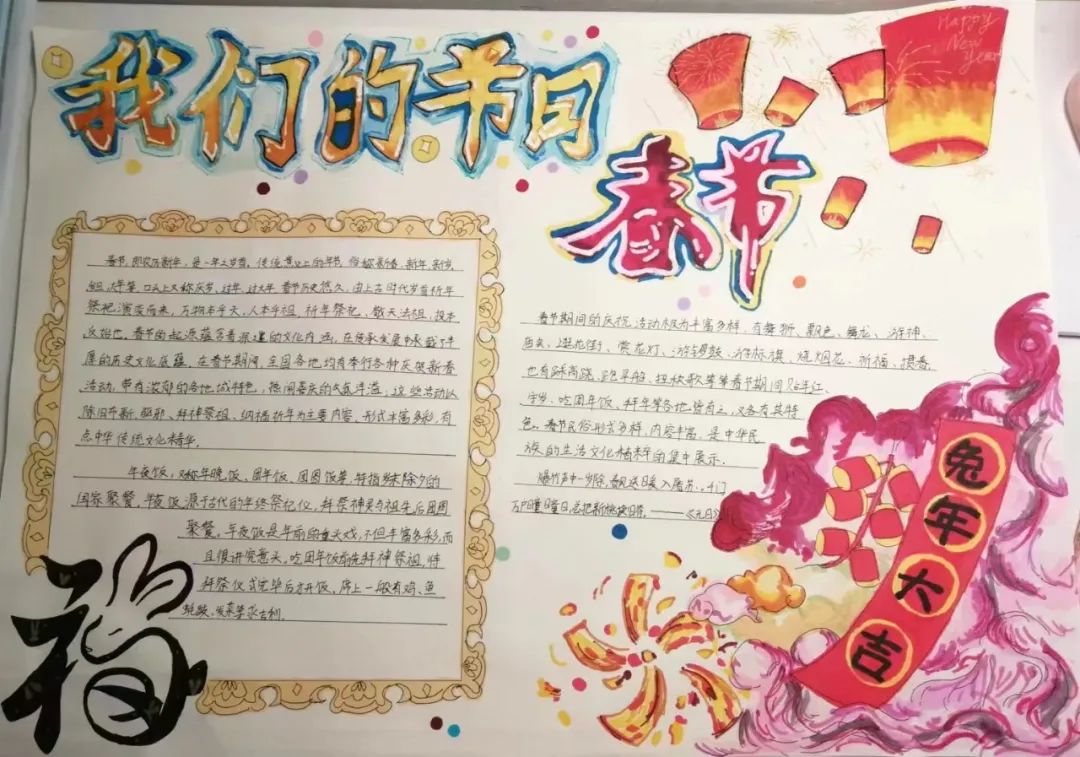 我们的节日
春节
Happy
New
Year
春节,即农历新年,是一年之岁首,传统意义上的年节。俗称新春、新年、新岁、
大年等,口头上又称庆岁、过年、过大年。春节历史悠久,由上古时代岁首祈年
祭祀演变而来。万物本乎天,人本乎祖,祈年祭祀、敬天法祖,报本
反始也。春节的起源蕴含着深邃的文化内涵,在传承发展中承载了丰
厚的历史文化底蕴。在春节期间,全国各地均有举行各种庆贺新春
活动,带有浓郁的各地域特色,热闹喜庆的气氛洋溢;这些活动以
除旧布新、驱邪、拜神祭祖、纳福祈年为主要内容,形式丰富多彩,有
点中华传统文化精华。
年夜饭,又称年晚饭、团年饭、团圆饭等,特指岁末除夕的
阖家聚餐。年夜饭源于古代的年终祭祀仪,拜祭神灵与祖先后团圆
聚餐。年夜饭是年前的重头戏,不但丰富多彩,而
且很讲究意头。吃团年饭前先拜神祭祖,待
拜祭仪式完毕后才开饭。席上一般有鸡、鱼
蚝豉、发菜等求吉利。
福
春节期间的庆祝活动极为丰富多样,有舞狮、飘色、舞龙、游神、
庙会、逛花街、赏花灯、游锣鼓、游标旗、烧烟花、祈福、掼春,
也有踩高跷、跑旱船、扭秧歌等等。春节期间贴年红、
守岁、吃团年饭、拜年等各地皆有之,又各有其特
色。春节民俗形式多样、内容丰富,是中华民
族的生活文化精粹的集中展示。
爆竹声中一岁除,春风送暖入屠苏。千门
万户曈曈日,总把新桃换旧符。——《元日》
兔年大吉